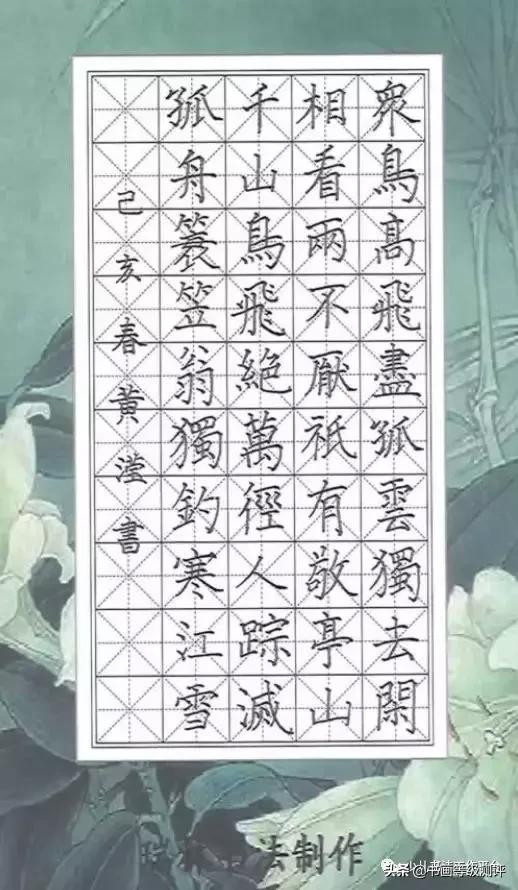 衆鳥高飛盡孤雲獨去閑
相看兩不厭祇有敬亭山
千山鳥飛絶萬徑人踪滅
孤舟簑笠翁獨釣寒江雪
己亥春黄滢書
法制作
头条@书画等级测评